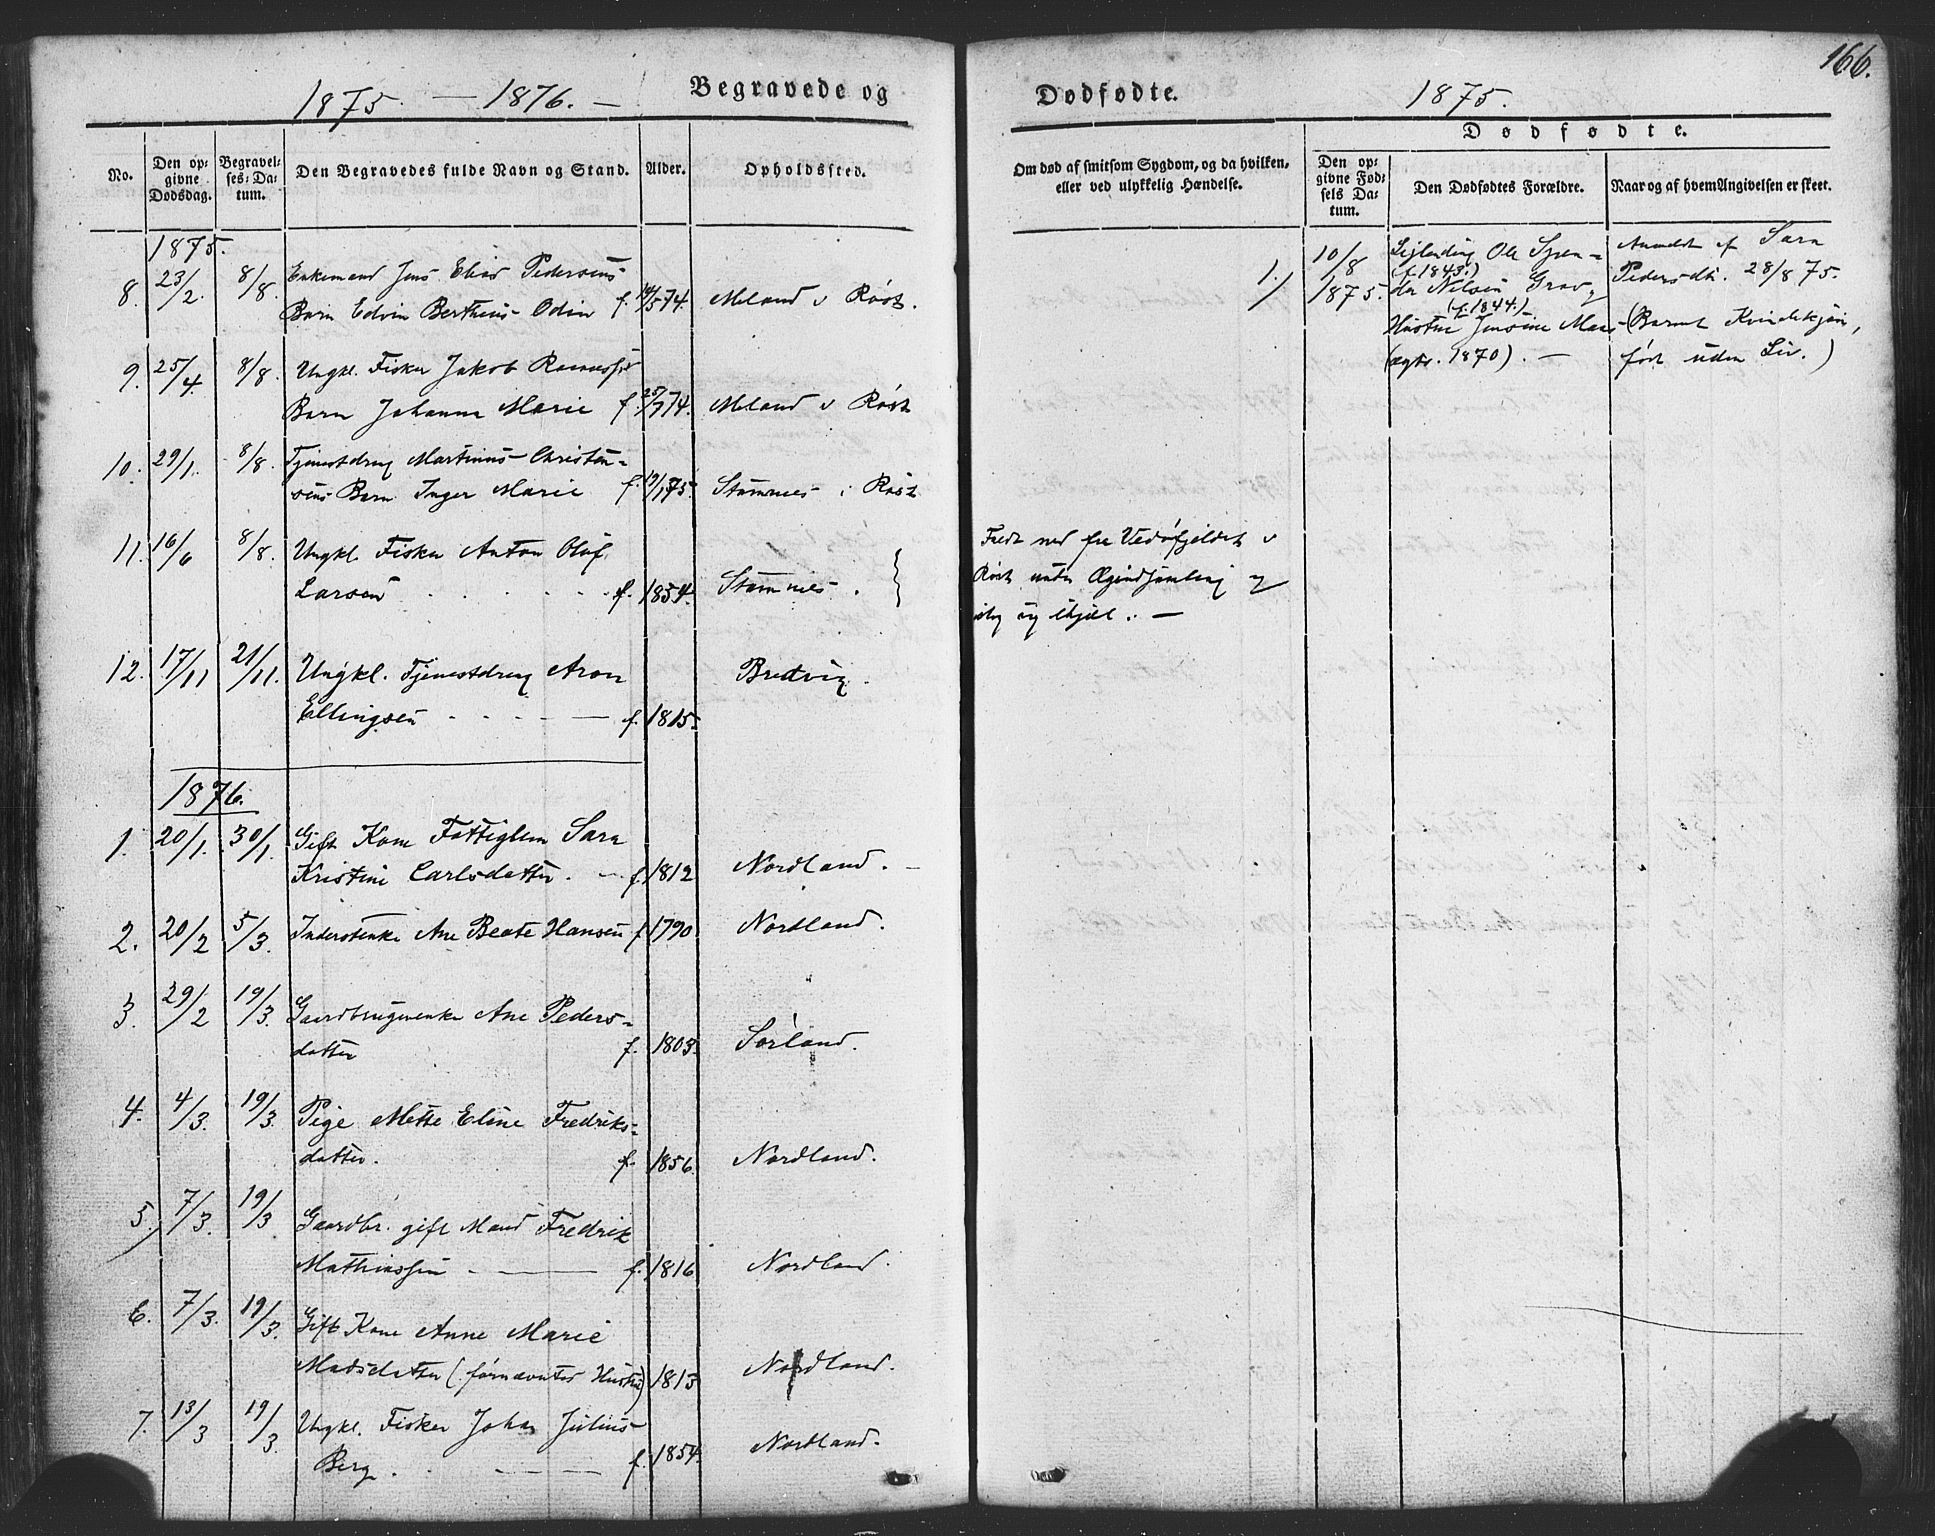 166.
1875. — 1876. —
Begravede og
Dødfødte.
1875.
No.
Den op-
givne
Dødsdag.
Begravel-
ses-Da-
tum.
Den Begravedes fulde Navn og Stand.
Alder.
Opholdssted.
Om død af smitsom Sygdom, og da hvilken,
eller ved ulykkelig Hændelse.
Dødfødte.
Den op-
givne Fød-
sels Da-
tum.
Den Dødfødtes Forældre.
Naar og af hvem Angivelsen er skeet.
1875.
8. 23/2. 8/8. Enkemand Jens Elias Pedersens
Barn Edvin Bertheus Odin f. 574. Meland i Røst.
9. 25/4. 8/8. Ungkl. Fisker Jakob
Barn Johanna Marie f. 25/774. Meland i Røst
10. 29/1. 8/8. Tjenestdreng Martinus Christen-
sens Barn Inger Marie f. 19/175. Stamnes i Røst
11. 16/6 8/8. Ungkl. Fisker Anton Oluf
Larsen f. 1854. Stamnes.
ned fra Vedøfjeldet i
Røst under og
slog sig ihjel. —
12. 17/11 21/11. Ungkl. Tjenestdreng Aron
Ellingsen — f. 1815. Bredvig.
1876.
1. 20/1. 30/1. Gift Kone Fattiglem Sara
Kristine Carlsdatter. — f. 1812 Nordland. —
2. 20/2 5/3. Inderstenke Ane Beate Hansen f. 1790 Nordland.
3. 29/2 19/3. Gaardbrugerenke Ane Peders-
datter f. 1803. Sørland.
4. 4/3. 19/3. Pige Mette Eline Fredriks-
datter. f. 1856. Nordland.
5. 7/3. 19/3 Gaardbr. gift Mand Fredrik
Mathiassen — f. 1816 Nordland.
6. 7/3. 19/3. Gift Kone Anne Marie
Madsdatter (førnævntes Hustru) 1813 Nordland.
7. 13/3 19/3. Ungkl. Fisker Johan Julius
Berg. — f. 1854. Nordland.
1. 10/8
1875.
Ole Spen-
(f. 1843.)
der Nilsen Grav og
(f. 1844.)
Hustru Jensine
(ægtv. 1870). —
Anmeldt af Sara
Pedersdtr. 28/8 75.
(Barnet Kvindekjøn,
født uden Liv.)